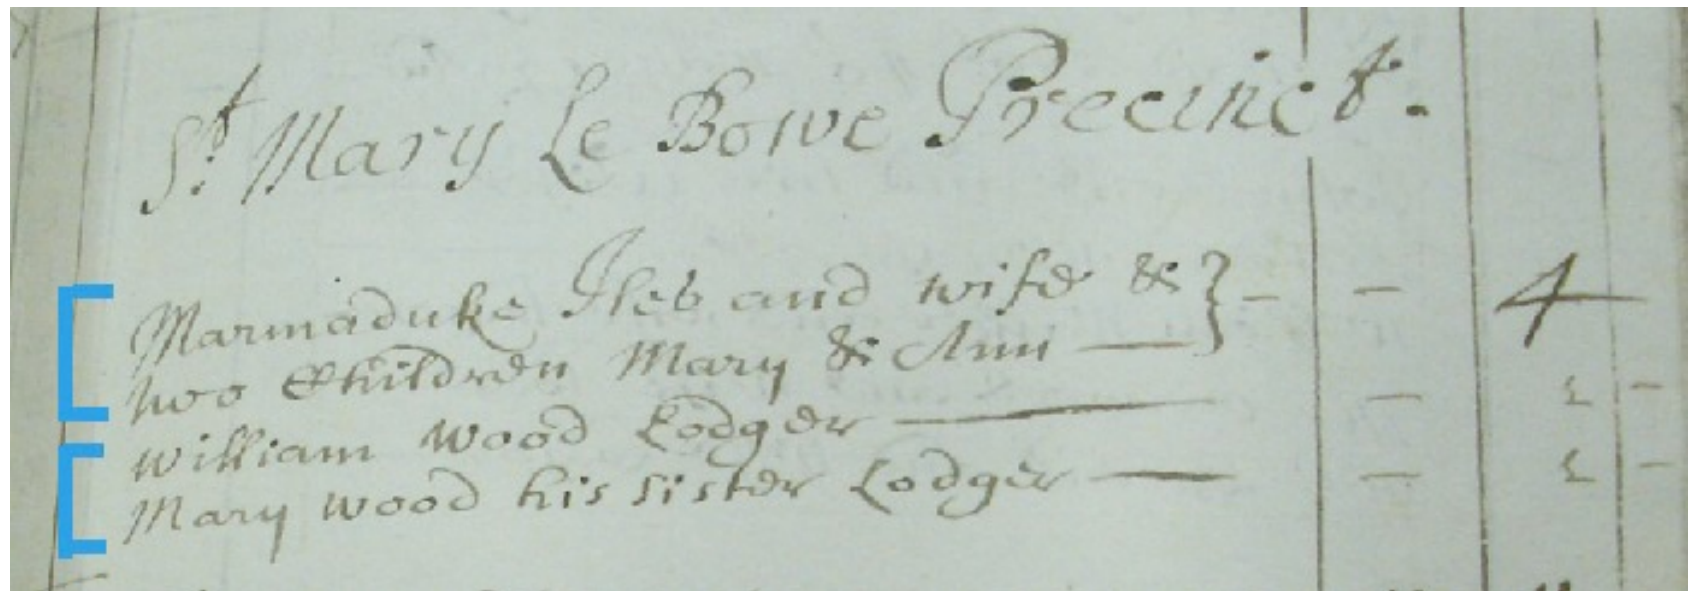 St. Mary Le Bowe Precinct.
Marmaduke Iles and wife & } - - 4 -
two Children Mary & Ann —
William Wood Lodger — - 1 -
Mary wood his sister Lodger — - 1 -